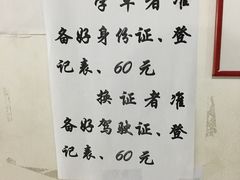 学车者准
备好身份证、登
记表、60元
换证者准
备好驾驶证、登
记表、60元